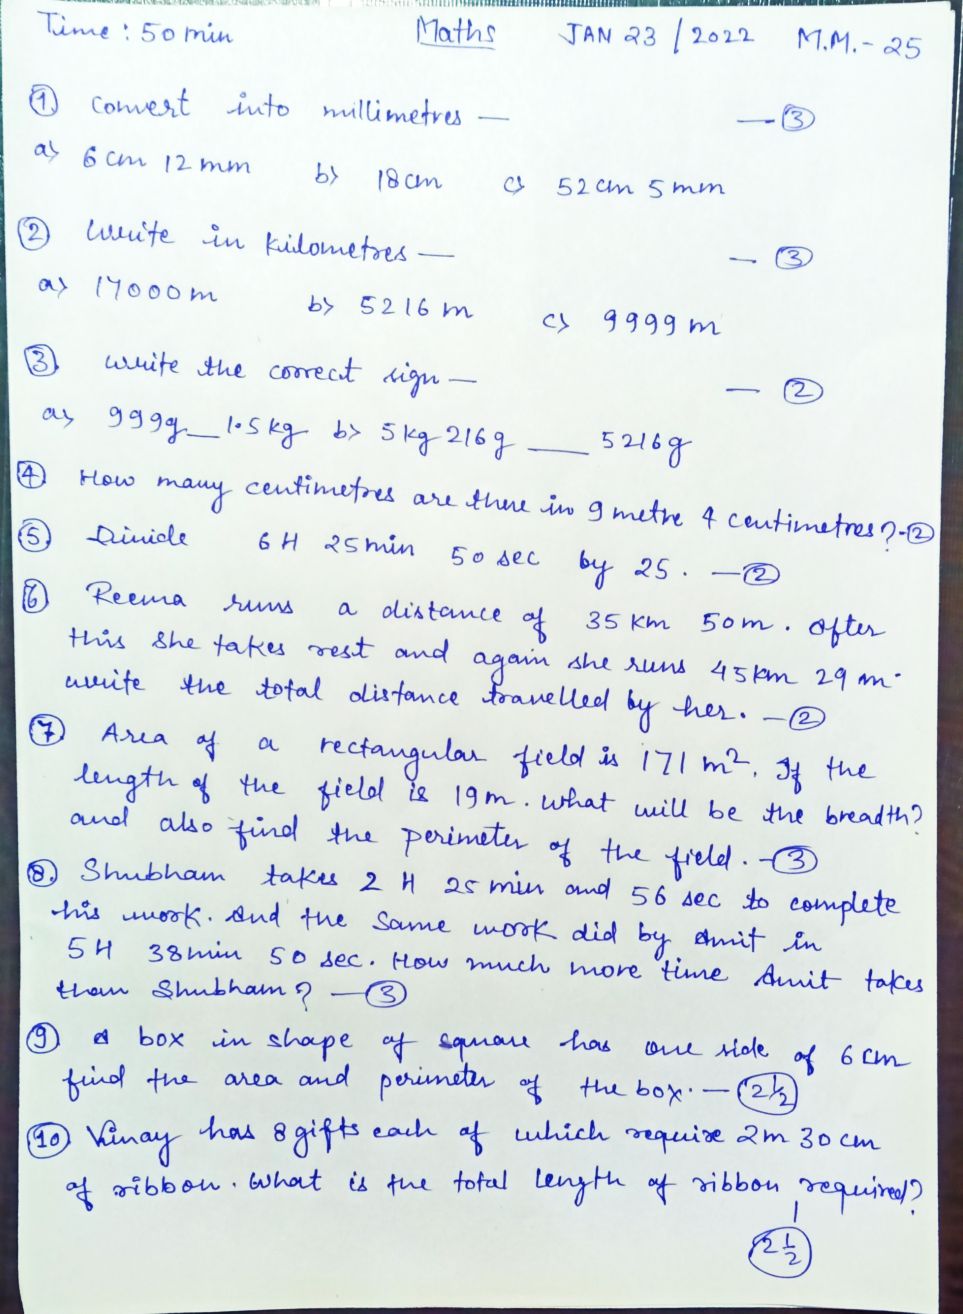 Time : 50 min Maths JAN 23 / 2022 M.M. - 25
① Convert into millimetres — — ③
a) 6 cm 12 mm b) 18 cm c) 52 cm 5 mm
② Write in kilometres — — ③
a) 17000 m b) 5216 m c) 9999 m
③ Write the correct sign — — ②
a) 999g __ 1.5 kg b) 5 kg 216 g ___ 5216 g
④ How many centimetres are there in 9 metre 4 centimetres? - ②
⑤ Divide 6 H 25 min 50 sec by 25. — ②
⑥ Reema runs a distance of 35 km 50 m. After
this she takes rest and again she runs 45 km 29 m.
write the total distance travelled by her. — ②
⑦ Area of a rectangular field is 171 m². If the
length of the field is 19 m. What will be the breadth?
and also find the perimeter of the field. - ③
⑧ Shubham takes 2 H 25 min and 56 sec to complete
his work. And the same work did by Amit in
5 H 38 min 50 sec. How much more time Amit takes
than Shubham? — ③
⑨ A box in shape of square has one side of 6 cm
find the area and perimeter of the box. — (2½)
⑩ Vinay has 8 gifts each of which require 2 m 30 cm
of ribbon. What is the total length of ribbon required?
(2½)